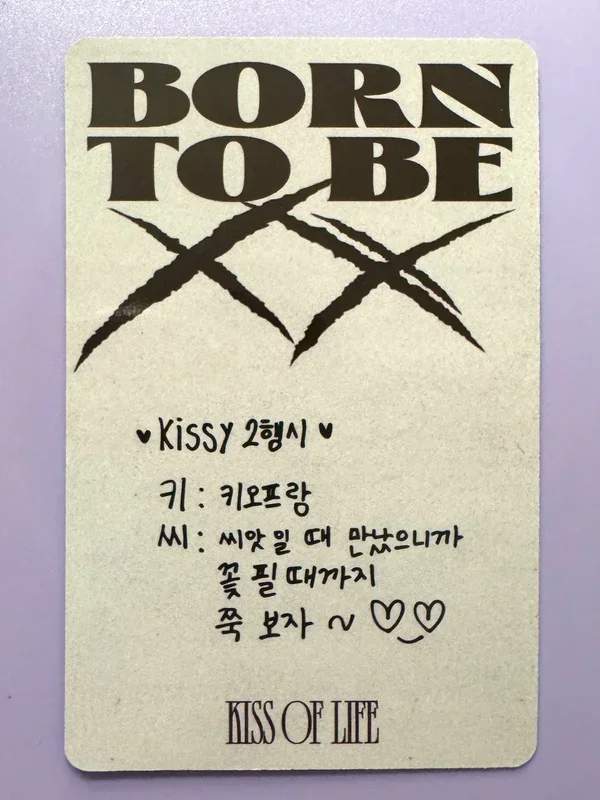 BORN
TO BE
XX
♥ Kissy 2행시 ♥
키 : 키오프랑
씨 : 씨앗일 때 만났으니까
꽃 필 때까지
쭉 보자 ~ ♡♡
KISS OF LIFE